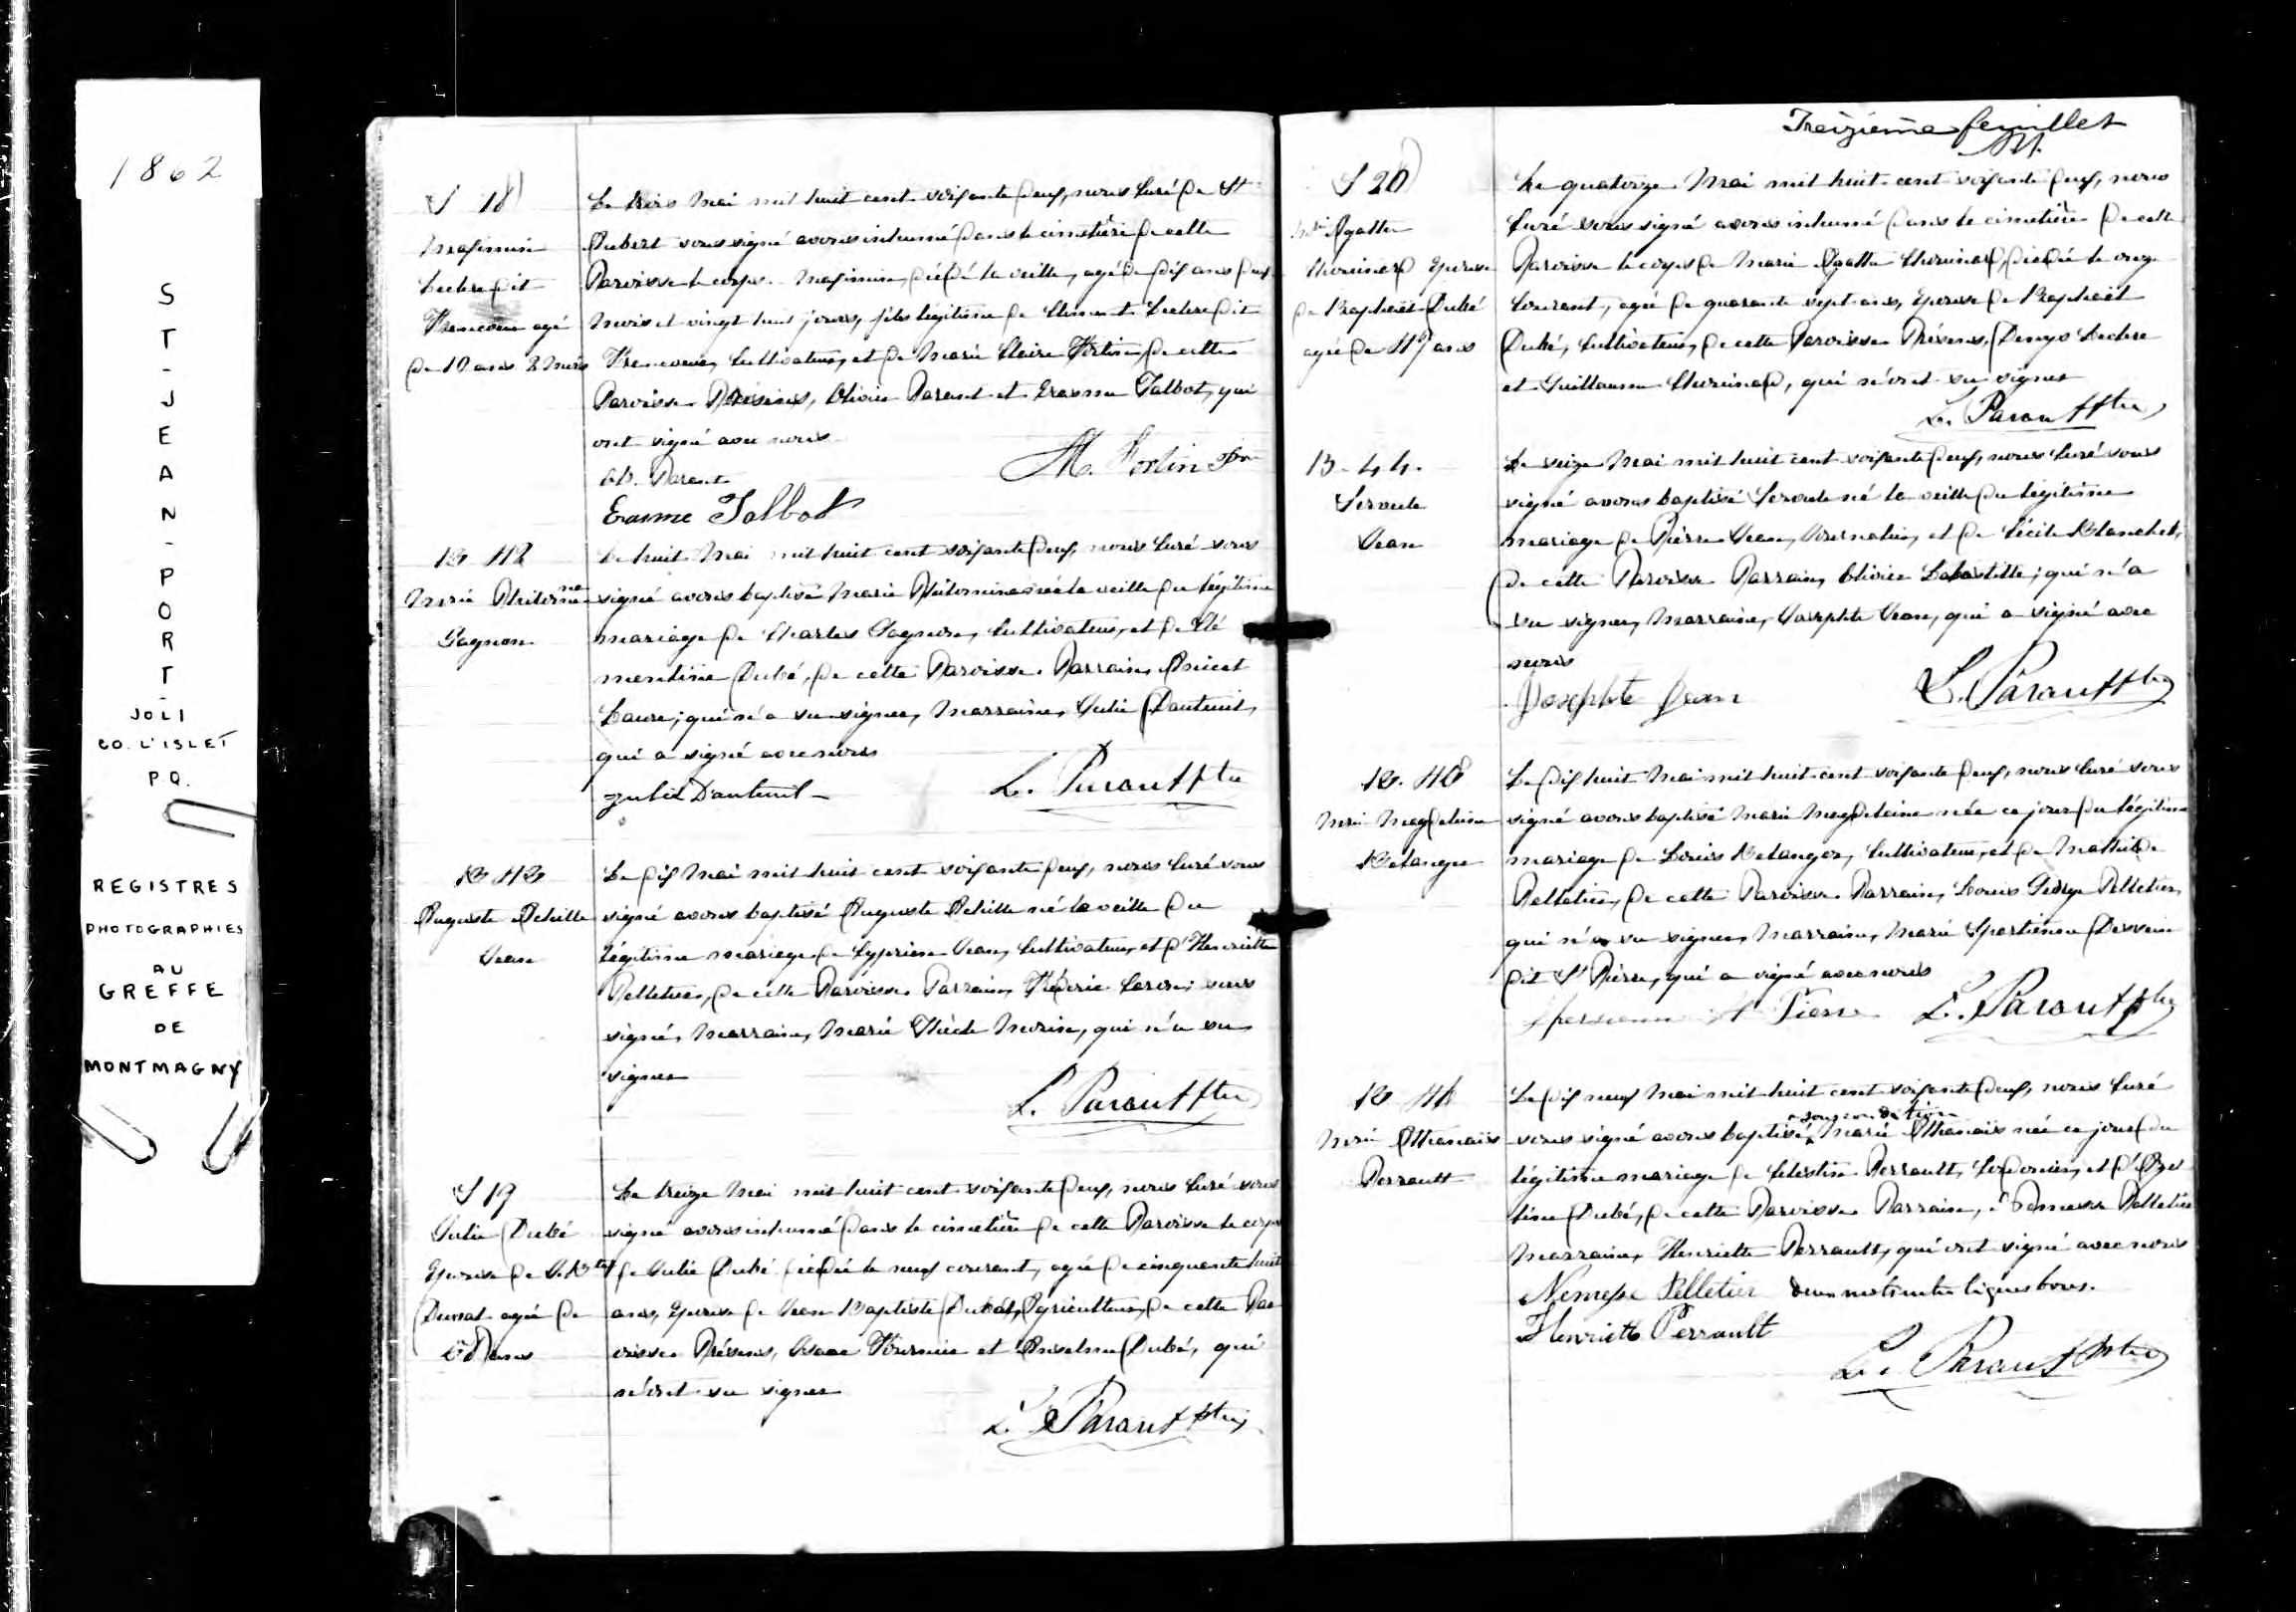 1862
ST-JEAN-PORT-
JOLI
CO. L'ISLET
P.Q.
REGISTRES
PHOTOGRAPHIES
AU
GREFFE
DE
MONTMAGNY
S 18
Maximin
Leclerc dit
Francoeur agé
de 10 ans 2 mois
Le trois Mai mil huit cent soixante deux, nous Curé de St
Aubert soussigné avons inhumé dans le cimetière de cette
Paroisse le corps Maximin, décédé la veille, agé de dix ans deux
mois et vingt huit jours, fils légitime de Clément Leclerc dit
Francoeur, Cultivateur, et de Marie Claire Fortin, de cette
Paroisse Présens, Olivier Parent et Erasme Talbot, qui
ont signé avec nous
Ol. Parent
M. Fortin Ptre
Erasme Talbot
B 42
Marie Philomène
Gagnon
Le huit Mai mil huit cent soixante deux, nous Curé sous
signé avons baptisé Marie Philomène née la veille du légitime
mariage de Charles Gagnon, Cultivateur, et de Clé
mentine Dubé, de cette Paroisse. Parrain, Anicet
Caron; qui n'a su signer, Marraine, Julie Dauteuil,
qui a signé avec nous
Julie Dauteuil
L. Parant Ptre
B 43
Auguste Achille
Jean
Le dix Mai mil huit cent soixante deux, nous Curé sous
signé avons baptisé Auguste Achille né la veille du
légitime mariage de Cyprien Jean, Cultivateur, et d'Henriette
Pelletier, de cette Paroisse. Parrain, Fréderic Caron; sous
signé, Marraine, Marie Thècle Morin, qui n'a su
signer
L. Parant Ptre
S 19
Julie Dubé
Epouse de J. Bte
Durval agée de
58 ans
Le treize Mai mil huit cent soixante deux, nous Curé sous
signé avons inhumé dans le cimetière de cette Paroisse le corps
de Julie Dubé décédée le neuf courant, agée de cinquante huit
ans, Epouse de Jean Baptiste Agriculteur, de cette Pa
roisse. Présens, Isaac Fournier et Anselme Dubé, qui
n'ont su signer
L. Parant Ptre
Treizième feuillet
S 20
Mie Agathe
Chouinard Epouse
de Raphael Dubé
agée de 47 ans
Le quatorze Mai mil huit cent soixante deux, nous
Curé soussigné avons inhumé dans le cimetière de cette
Paroisse le corps de Marie Agathe Chouinard, décédée le onze
Courant, agée de quarante sept ans, Epouse de Raphaël
Dubé, Cultivateur, de cette Paroisse. Présens, Denys Leclerc
et Guillaume Chouinard, qui n'ont su signer
L. Parant Ptre
B. 44.
Jean
Le seize Mai mil huit cent soixante deux, nous Curé sous
signé avons baptisé né la veille du légitime
mariage de Pierre Jean, Journalier, et de Cécile Blanchet,
de cette Paroisse Parrain, Olivier qui n'a
su signer, Marraine, Josephte Jean, qui a signé avec
nous
Josephte Jean
L. Parant Ptre
B. 45
Marie Magdeleine
Belanger
Le dix huit Mai mil huit cent soixante deux, nous Curé sous
signé avons baptisé Marie Magdeleine née ce jour du légitime
mariage de Louis Belanger, Cultivateur, et de Mathilde
Pelletier, de cette Paroisse. Parrain, Louis George Pelletier,
qui n'a su signer, Marraine, Marie Dessein
dit St Pierre, qui a signé avec nous
St Pierre
L. Parant Ptre
B 46
Marie Athanaïs
Perrault
Le dix neuf Mai mil huit cent soixante deux, nous Curé
sous condition
sous signé avons baptisé Marie Athanaïs née ce jour du
légitime mariage de Celestin Perrault, Cordonnier, et d'Ozel
tine Dubé, de cette Paroisse. Parrain, Nemesse Pelletier
Marraine, Henriette Perrault, qui ont signé avec nous
Nemesse Pelletier deux mots entre lignes bons.
Henriette Perrault
L. Parant Ptre